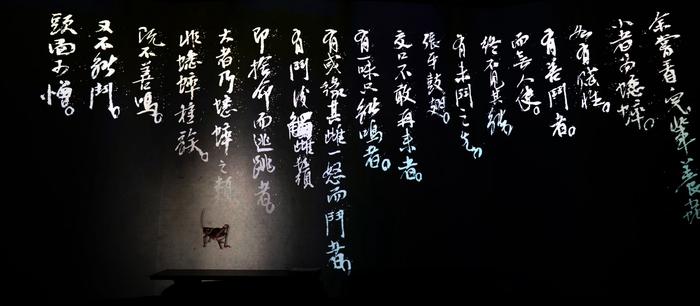 余常看
小者爲蟋蟀。
有善鬥者。
而無人使。
終不見其能
有未鬥之先。
張牙鼓翅。
交口不敢再來者。
有一味只能鳴者。
有或緣其雌一怒而鬥者。
有鬥後觸雌鬚
即捨命而逃跳者。
大者乃蟋蟀之類。
非蟋蟀種族。
既不善鳴。
又不能鬥。
頭面可憎。